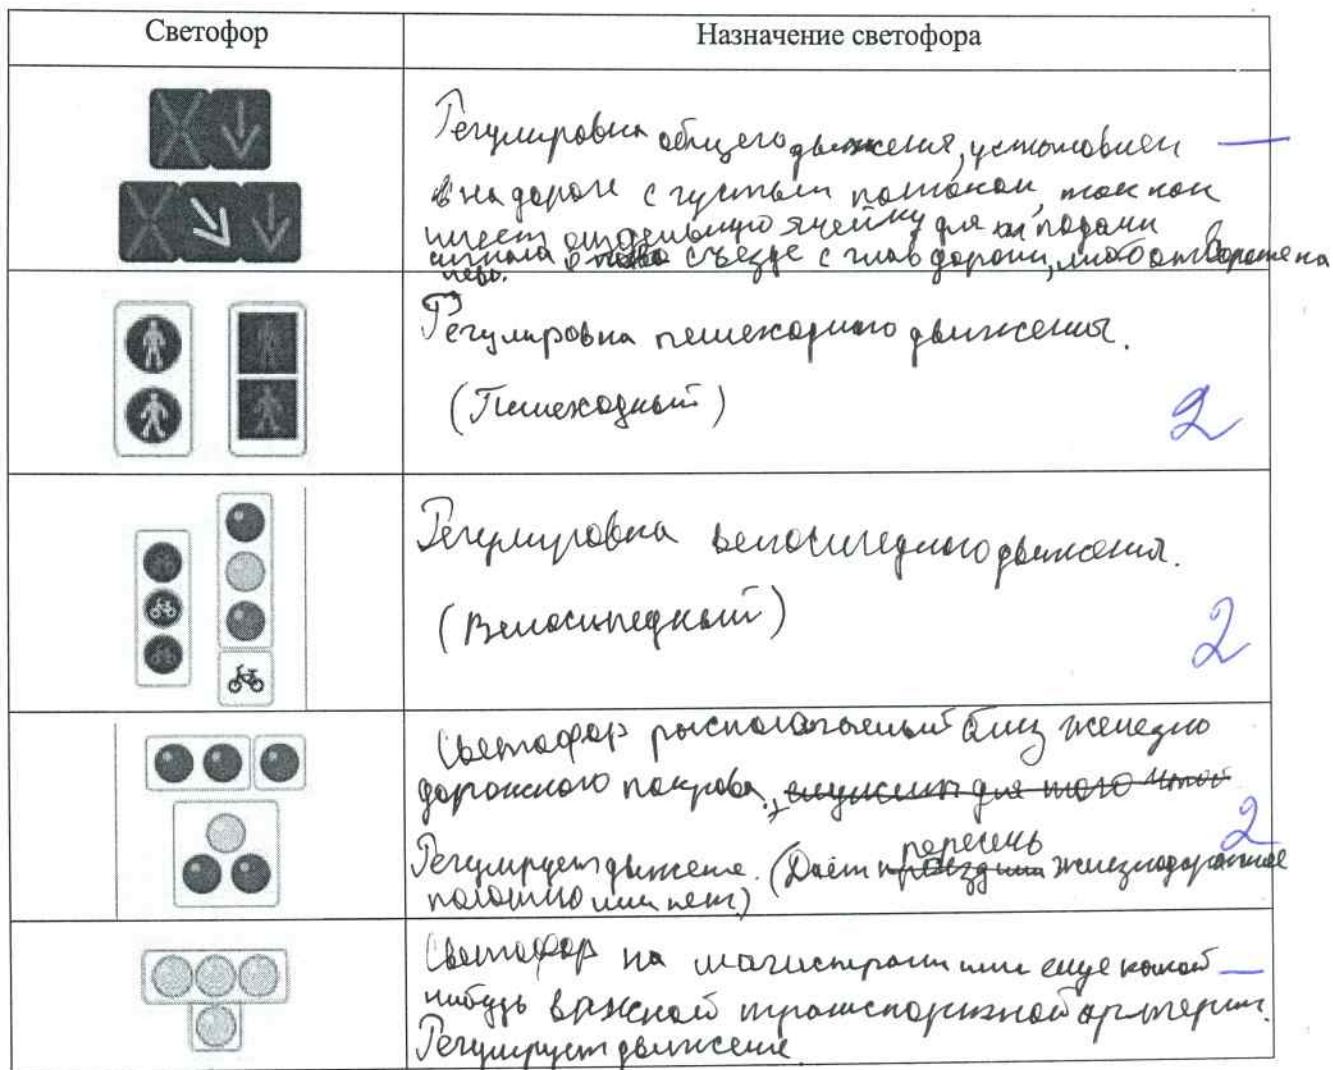 Светофор
Назначение светофора
Регулировка общего движения, установлен —
в на дороге с густым потоком, так как
имеет отдельную ячейку для подачи
сигнала о съезде с глав дороги, либо отворота на
лево.
Регулировка пешеходного движения.
(Пешеходный)
2
Регулировка велосипедного движения.
(Велосипедный)
2
Светофор распологаемый близ железно
дорожного покрова, служит для того чтоб
2
пересечь
Регулирует движение. (Даёт проезд или железнодорожное
полотно или нет.)
Светофор на магистрали или еще какой —
нибудь важной транспортной артерии.
Регулирует движение.